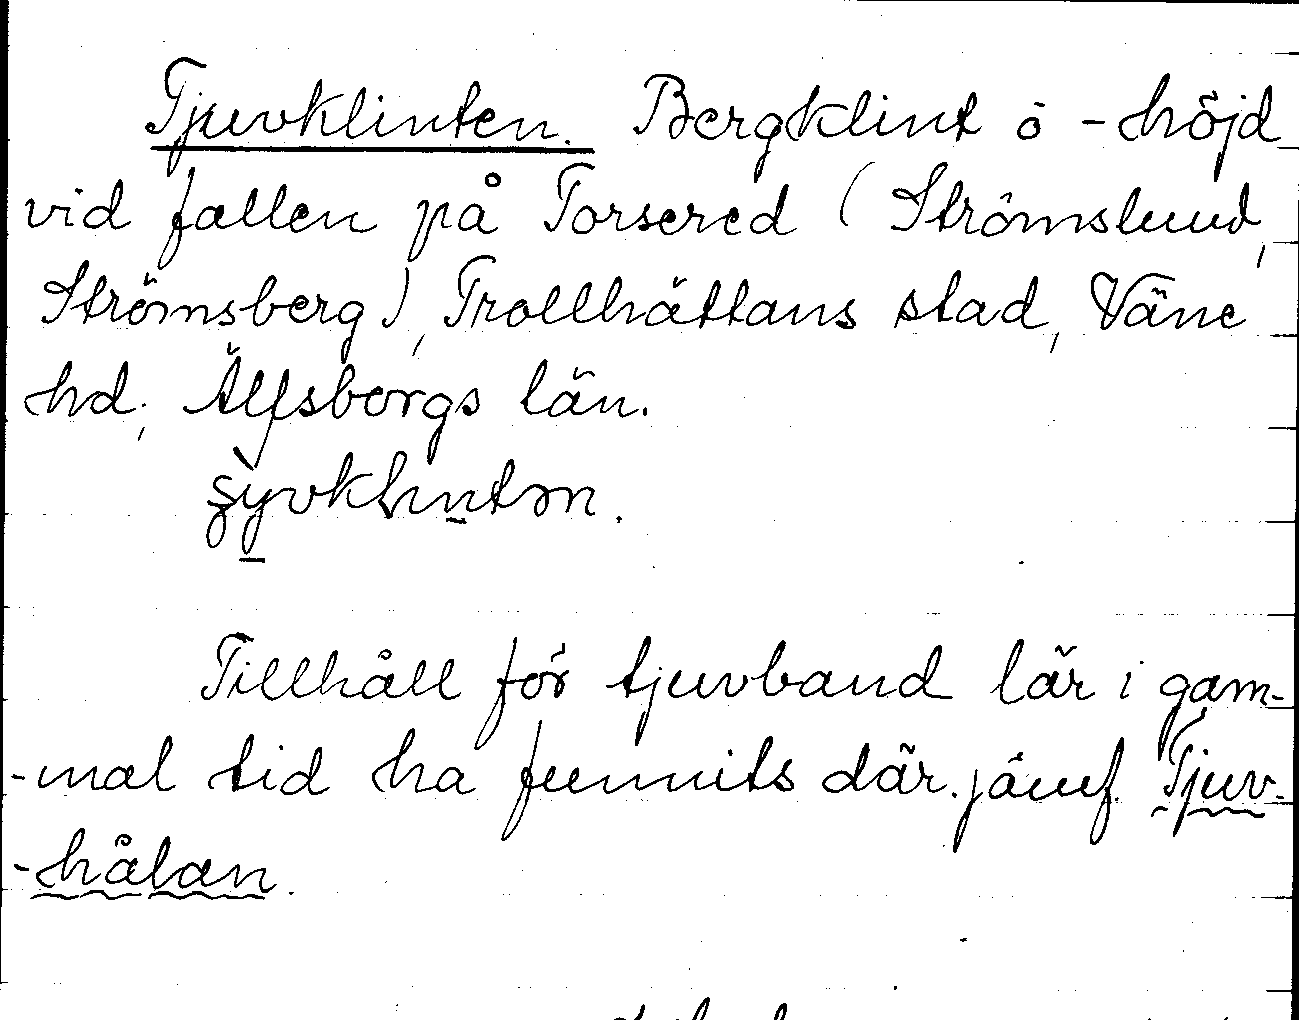 Tjuvklinten. Bergklint o -höjd
vid fallen på Torsered (Strömslund,
Strömsberg), Trollhättans stad, Väne
hd, Älfsborgs län.
Tillhåll för tjuvband lär i gam-
-mal tid ha funnits där. jämf. Tjuv-
-hålan.